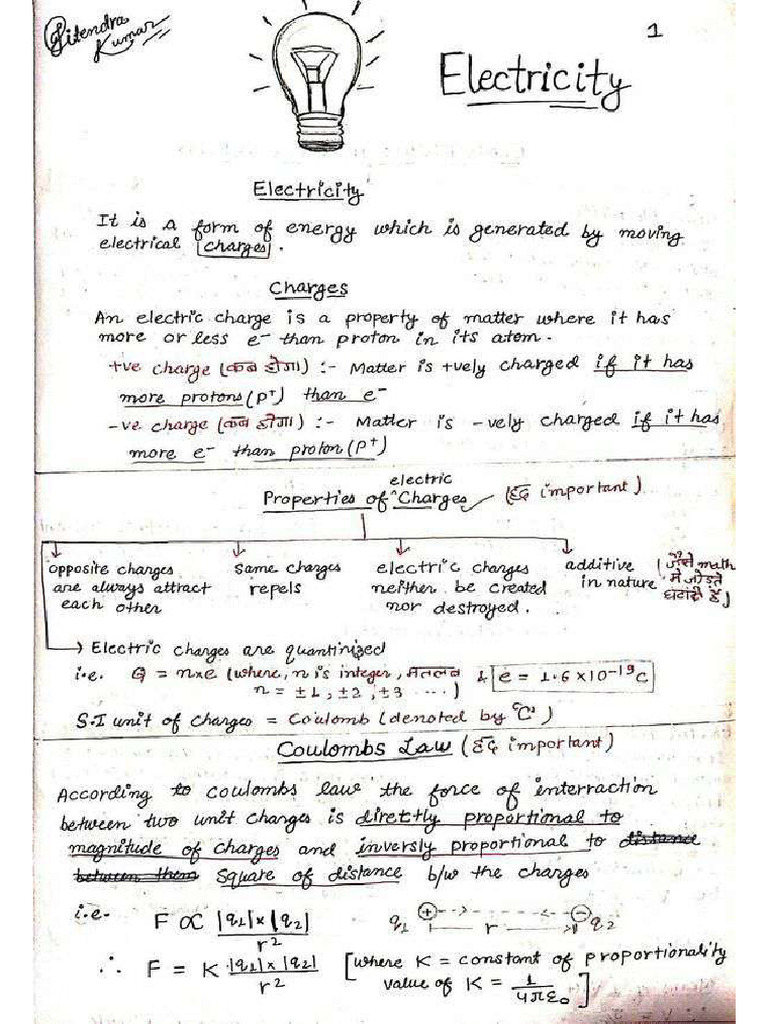 Jitendra Kumar
1
Electricity
Electricity
It is a form of energy which is generated by moving
electrical charges.
Charges
An electric charge is a property of matter where it has
more or less e⁻ than proton in its atom.
+ve charge (कब होगा) :- Matter is +vely charged if it has
more protons (p⁺) than e⁻
-ve charge (कब होगा) :- Matter is -vely charged if it has
more e⁻ than proton (p⁺)
Properties of electric Charges (हद important)
opposite charges
are always attract
each other
same charges
repels
electric charges
neither be created
nor destroyed.
additive
in nature
(जैसे math
मे जोड़ते
घटाते हैं)
Electric charges are quantinized
i.e. Q = n×e (where, n is integer, मतलब
n = ±1, ±2, ±3 ....)
& e = 1.6×10⁻¹⁹C
S.I unit of charges = Coulomb (denoted by "C")
Coulombs Law (हद important)
According to coulombs law the force of interraction
between two unit charges is directly proportional to
magnitude of charges and inversly proportional to distance
between them square of distance b/w the charges
i.e. F ∝ |q₁|×|q₂| / r²
q₁ + r - q₂
∴ F = K |q₁|×|q₂| / r² [where K = constant of proportionality
value of K = 1 / 4πε₀]